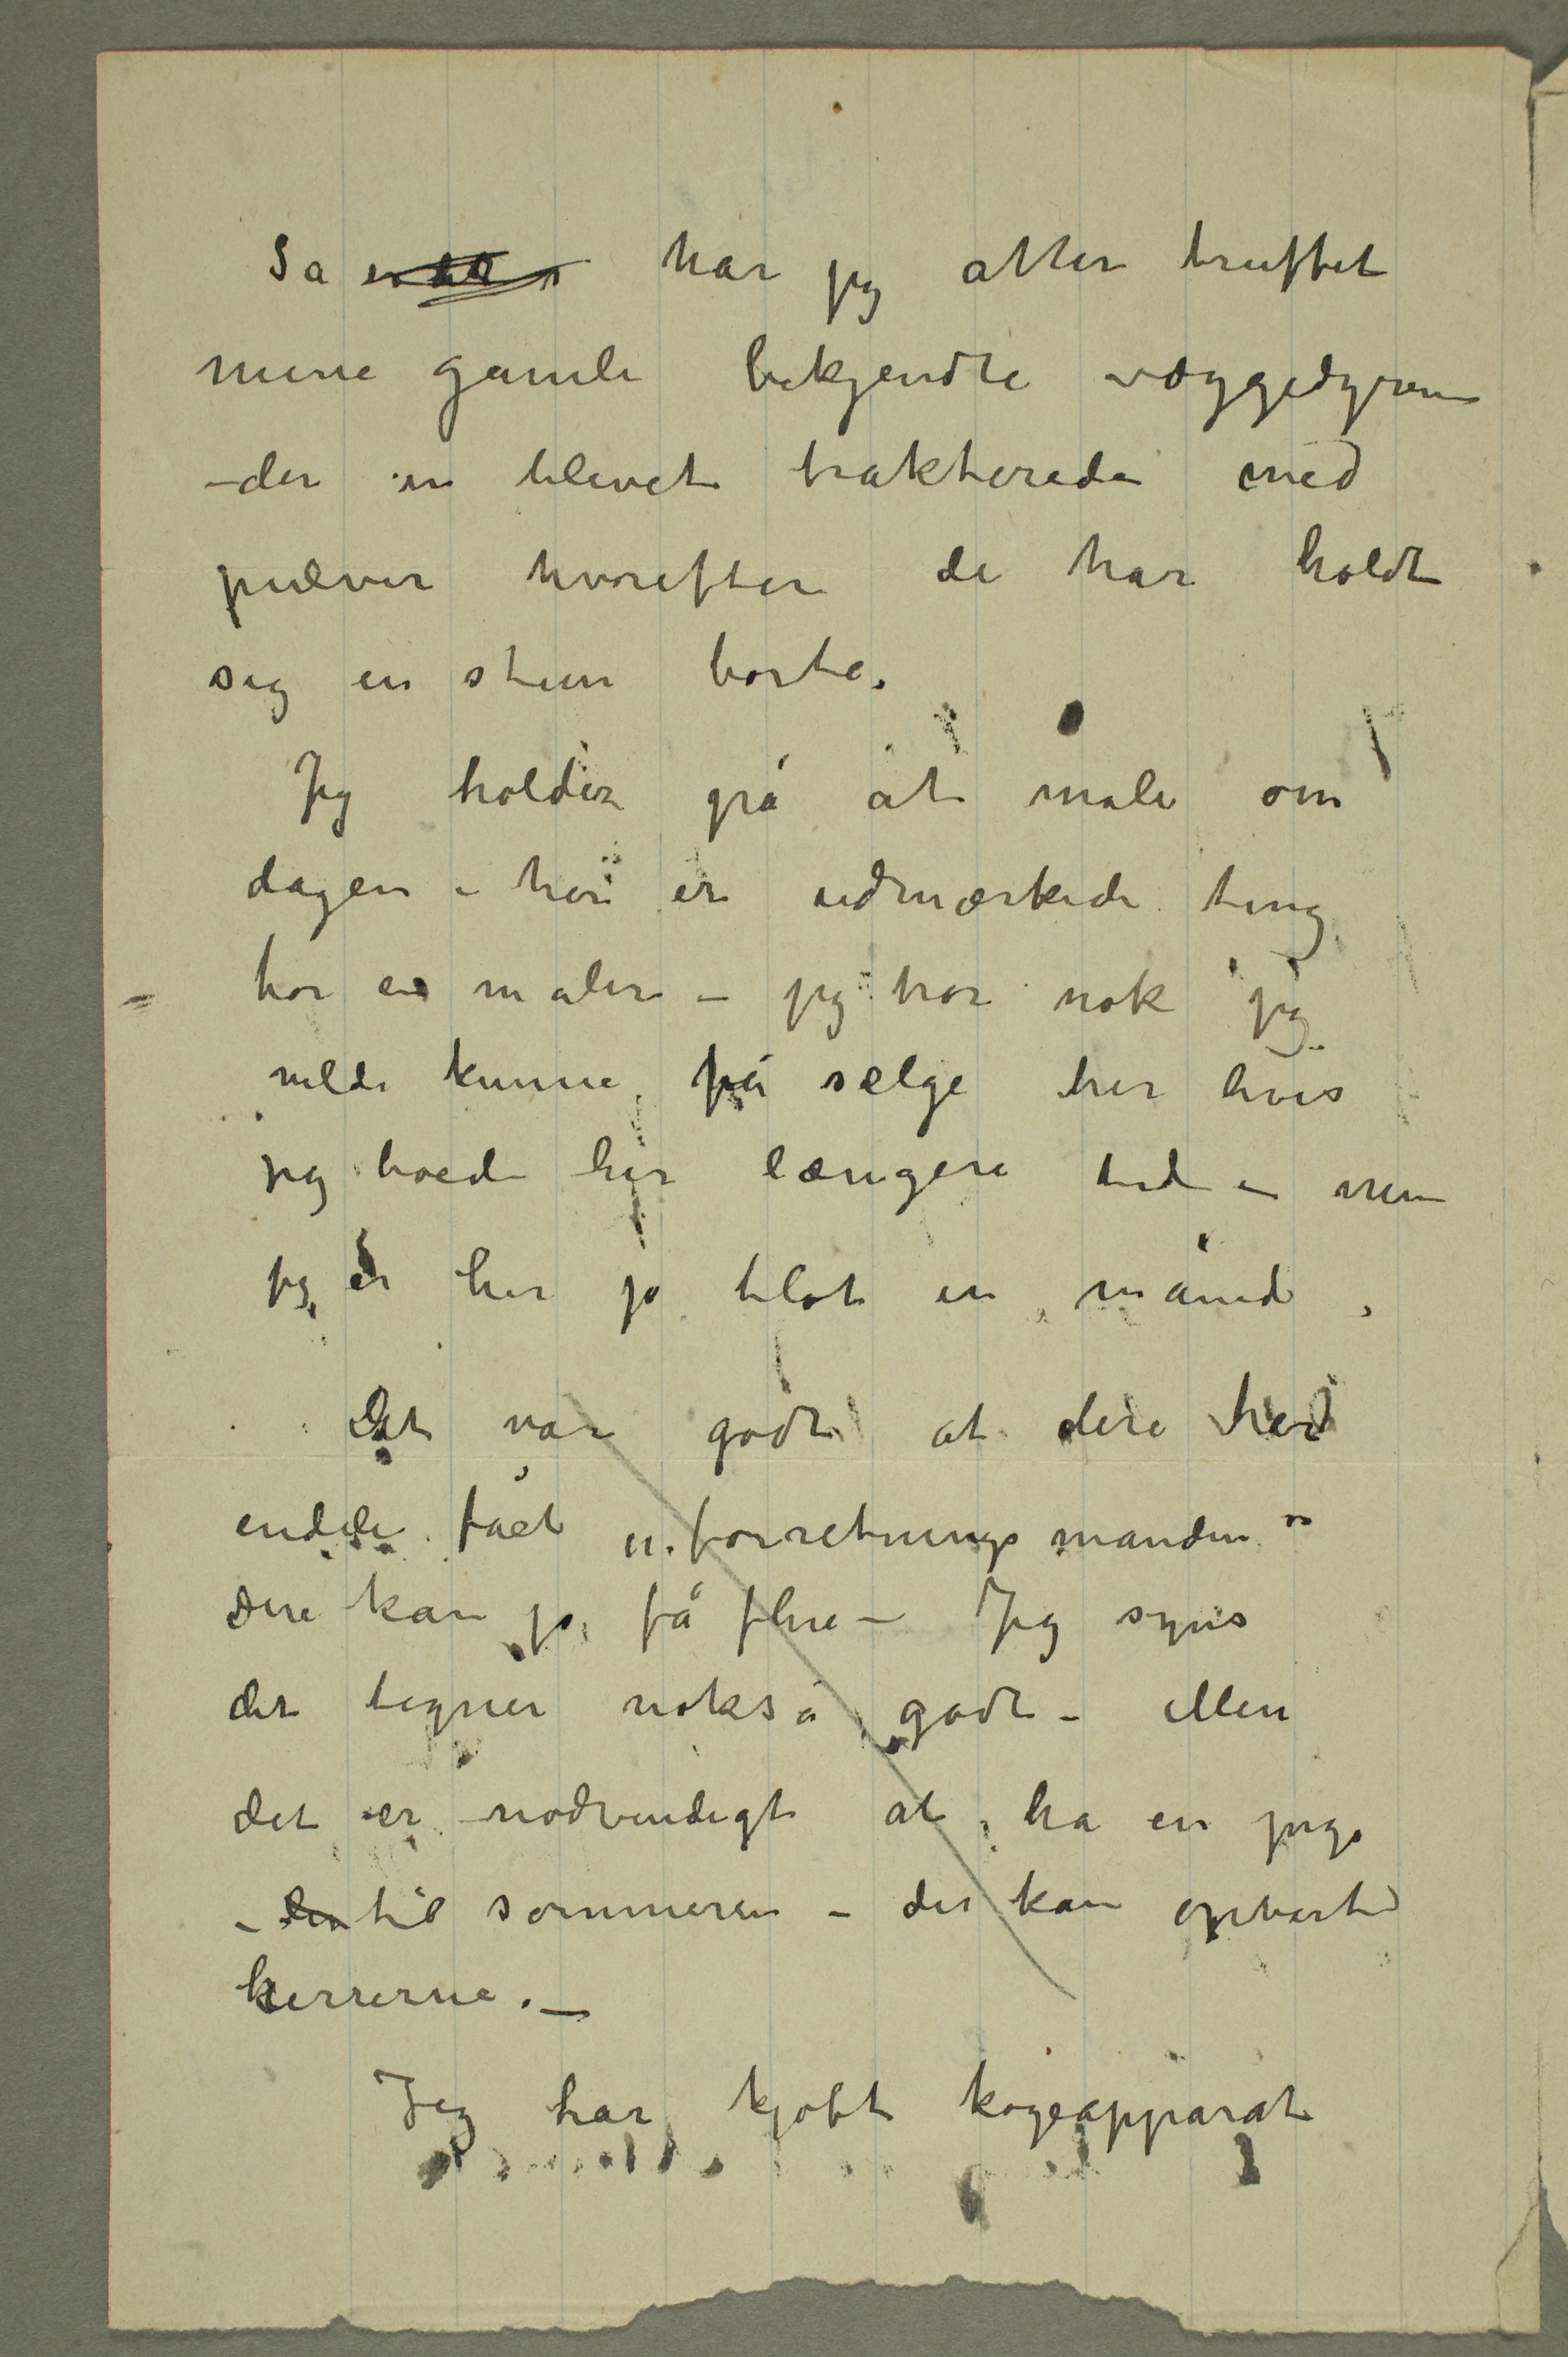 Sa har jeg atter truffet
mine gamle bekjendte væggedyrene
– der er blevet trakterede med
pulver hvorefter de har holdt
sig en stun borte.
Jeg holder på at male om
dagen – her er udmærkede ting
for en maler – jeg tror nok jeg
vilde kunne få sælge her hvis
jeg boede her længere tid – men
jeg er her jo blot en måned.
Det var godt at dere har
endeli fået „forretningsmanden“
Dere kan jo få flere – Jeg synes
det tegner nokså godt – Men
det er nødvendigt at ha en pige
– til sommeren – det kan opvarte
herrerne. –
Jeg har kjøbt kogeapparat